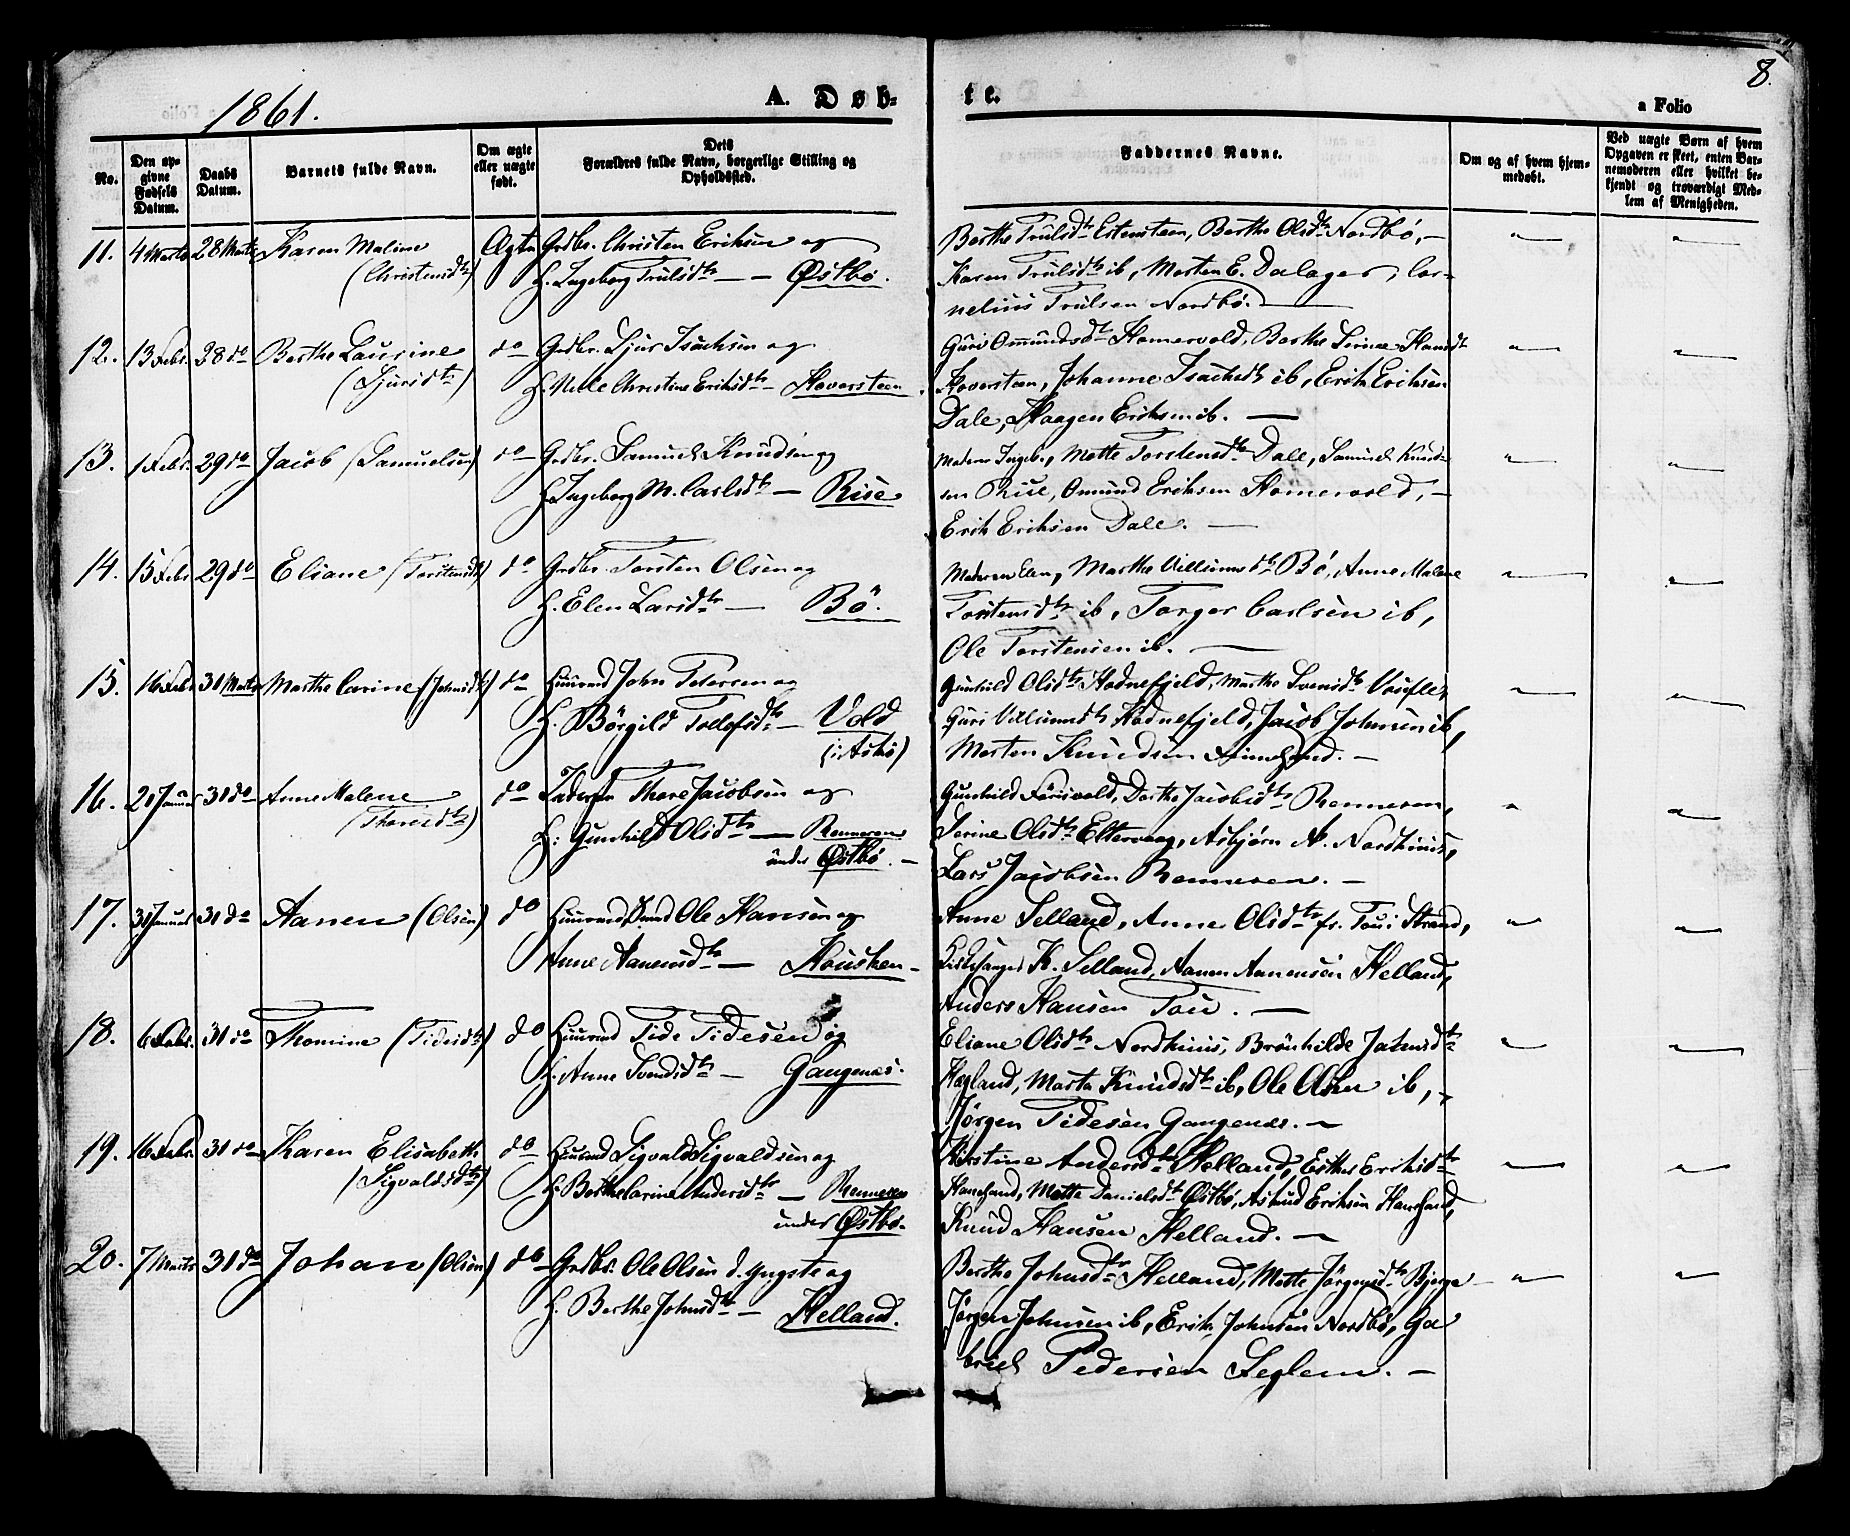 1861.
A. Døb-
te.
a Folio
8.
No.
Den op-
givne
Fødsels
Datum.
Daabs
Datum.
Barnets fulde Navn.
Om ægte
eller uægte
født.
Dets
Forældres fulde Navn, borgerlige Stilling og
Opholdssted.
Faddernes Navne.
Om og af hvem hjem-
medøbt.
Ved uægte Børn af hvem
Opgaven er skeet, enten Bar-
nemoderen eller hvilket be-
kjendt og troværdigt Med-
lem af Menigheden.
11. 4 Marts 28 Marts Karen Maline Ægte Grdbr. Christen Eriksen og
(Christensdtr) H. Ingeborg Trulsdtr — Østbø.
Berthe Trulsdtr Berthe Olsdtr Nordbø, —
Karen Trulsdtr ib, Morten E. Dalager, Cor-
nelius Trulsen Nordbø. —
12. 13 Febr. 28 do Berthe Laurine do Grdbr. Sjur Isachsen og
(Sjursdtr) H. Nelle Christine Eriksdtr — Hoversteen.
Guri Omundsdtr Homervold, Berthe Serine Hansdt
Hoversteen, Johanne Isachsdtr ib, Erik Eriksen
Dale, Haagen Eriksen ib. —
13. 1 Febr. 29 do Jacob (Samuelsen) do Grdbr. Samuel Knudsen og
H. Ingeborg M. Carlsdtr — Riise
Moderen Ingeb., Mette Torstensdtr Dale, Samuel Knud-
sen Riise, Omund Eriksen Homervold, —
Erik Eriksen Dale. —
14. 15 Febr 29 do Eliane (Torstensdtr) do Grdbr. Torsten Olsen og
H. Elen Larsdtr — Bö.
Moderen Elen, Marthe Villumsdtr Bö, Anne Malene
Torstensdtr ib, Torger Carlsen ib,
Ole Torstensen ib. —
15. 16 Febr 31 Marts Marthe Carine (Johnsdtr) do Huusmd John Petersen og
H. Börgild Tollefsdtr — Vold
(i Askø)
Gunhild Olsdtr Hodnefjeld, Marthe Svensdtr
Guri Villumsdtr Hodnefjeld, Jacob Johnsen ib,
Morten Knudsen —
16. 21 Januar 31 do Anne Malene do Thore Jacobsen og
(Thoresdtr) H: Gunhild Olsdtr — Renneren
under Østbø. —
Gunhild Dorthe Jacobsdtr Renneren,
Serine Olsdtr Eltervaag, Asbjørn A. Nordhuus,
Lars Jacobsen Renneren. —
17. 31 Januar 31 do Aanen (Olsen) do Ole Hansen og
Anne Aanensdtr — Housken —
Anne Selland, Anne Olsdtr fr. Tou i Strand,
Kirkesanger K. Selland, Aanen Aanensen Helland,
Anders Hansen Tou. —
18. 6 Febr. 31 do Thomine (Tidesdtr) do Huusmd Tide Tidesen og
H. Anne Svendsdtr — Gangenes.
Eliane Olsdtr Nordhuus, Brönhilde Johnsdtr
Hegland, Marta Knudsdtr ib, Ole Olsen ib, —
Jørgen Tidesen Gangenes. —
19. 16 Febr. 31 do Karen Elisabeth do Huusmd Sigvald Sigvaldsen og
(Sigvaldsdtr) H. Berthe Carine Andersdtr — Renneren
under Østbø.
Kirstine Andersdtr Helland, Esther Eriksdtr
Hanesand, Mette Danielsdtr Østbø, Eriksen Hanesand,
Knud Hansen Helland. —
20. 7 Marts 31 do Johan (Olsen) do Grdbr. Ole Olsen d. yngste og
H. Berthe Johnsdtr — Helland.
Berthe Johnsdtr Helland, Mette Jørgensdtr Bjerga
Jørgen Johnsen ib, Erik Johnsen Nordbø, Ga
briel Pedersen Seglem. —